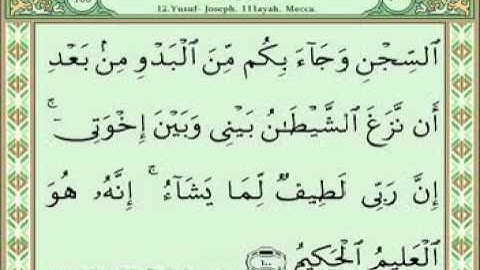 12.Yusuf- Joseph. 111ayah. Mecca.
ٱلسِّجْنِ وَجَآءَ بِكُم مِّنَ ٱلْبَدْوِ مِنۢ بَعْدِ
أَن نَّزَغَ ٱلشَّيْطَـٰنُ بَيْنِى وَبَيْنَ إِخْوَتِىٓ ۚ
إِنَّ رَبِّى لَطِيفٌ لِّمَا يَشَآءُ ۚ إِنَّهُۥ هُوَ
ٱلْعَلِيمُ ٱلْحَكِيمُ ١٠٠